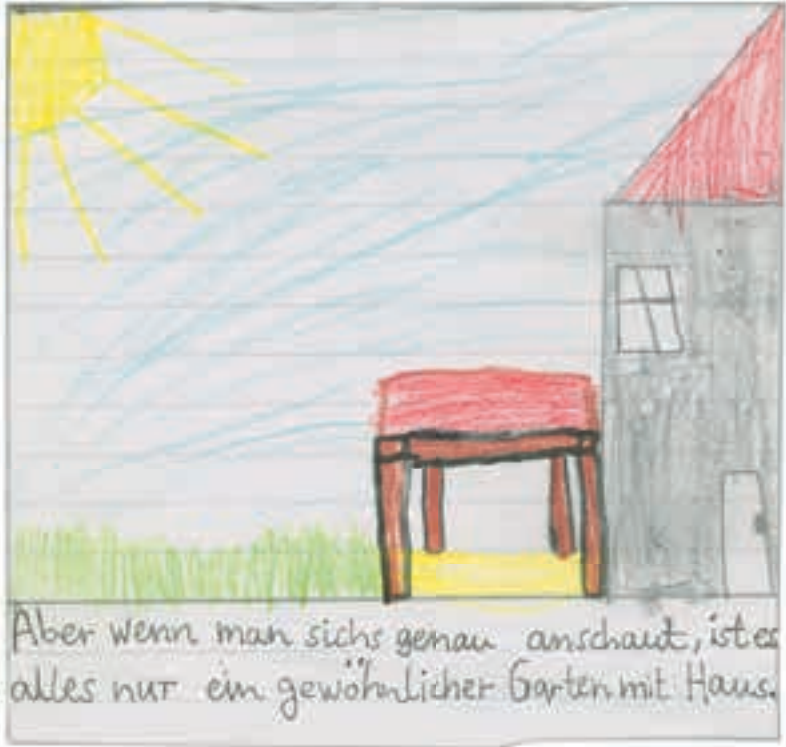 Aber wenn man sichs genau anschaut, ist es
alles nur ein gewöhnlicher Garten mit Haus.